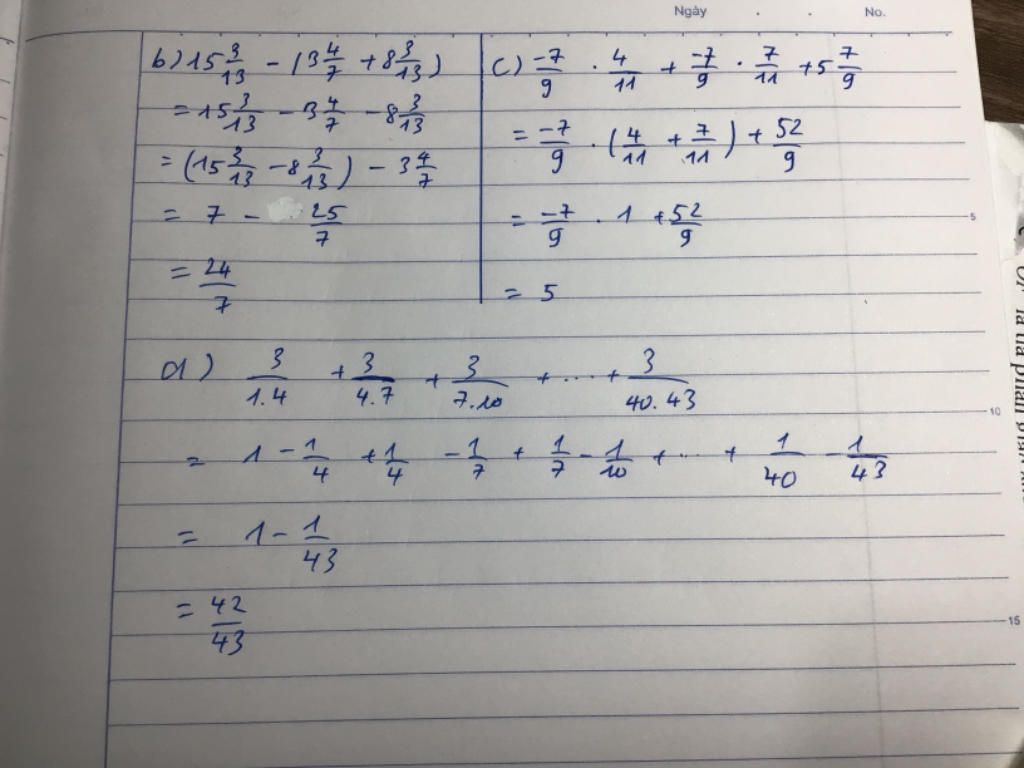 Ngày . . No.
b) 15 3/13 - (3 4/7 + 8 3/13)
= 15 3/13 - 3 4/7 - 8 3/13
= (15 3/13 - 8 3/13) - 3 4/7
= 7 - 25/7
= 24/7
c) -7/9 . 4/11 + -7/9 . 7/11 + 5 7/9
= -7/9 . (4/11 + 7/11) + 52/9
= -7/9 . 1 + 52/9
= 5
d) 3/1.4 + 3/4.7 + 3/7.10 + ... + 3/40.43
= 1 - 1/4 + 1/4 - 1/7 + 1/7 - 1/10 + ... + 1/40 - 1/43
= 1 - 1/43
= 42/43
5
10
15